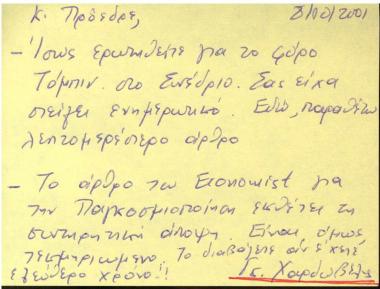 Κ. Πρόεδρε, 8/10/2001
– Ίσως ερωτηθείτε για το φόρο
Τόμπιν στο Συνέδριο. Σας είχα
στείλει ενημερωτικό. Εδώ, παραθέτω
λεπτομερέστερο άρθρο
– Το άρθρο του Economist για
την Παγκοσμιοποίηση εκθέτει τη
συντηρητική άποψη. Είναι όμως
τεκμηριωμένο. Το διαβάζετε αν έχετε
ελεύθερο χρόνο!!
Γκ. Χαρδούβελης